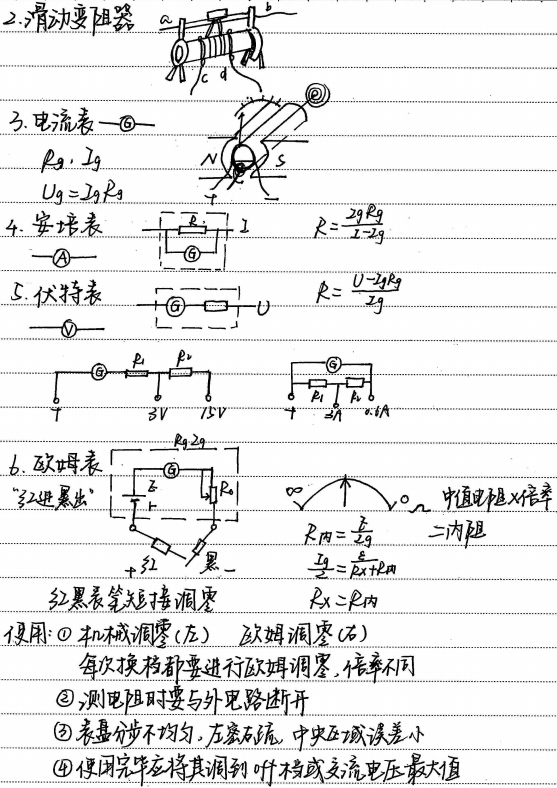 2.滑动变阻器
a b
c d
3.电流表 G
Rg、Ig
N S
+ −
Ug=IgRg
4.安培表 R I R=IgRg/(I-Ig)
G
A
5.伏特表 G U R=(U-IgRg)/Ig
V
G R1 R2 G
R1 R2
+ 3V 15V + 3A 0.6A
Rg Ig
6.欧姆表 G
"红进黑出" E R0 ∞ 0 Ω 中值电阻×倍率
R内=E/Ig =内阻
+ 红 黑 − Ig/2=E/(Rx+R内)
红黑表笔短接调零 Rx=R内
使用:①机械调零(左) 欧姆调零(右)
每次换档都要进行欧姆调零,倍率不同
②测电阻时要与外电路断开
③表盘分步不均匀,左密右疏,中央区域误差小
④使用完毕应将其调到off档或交流电压最大值